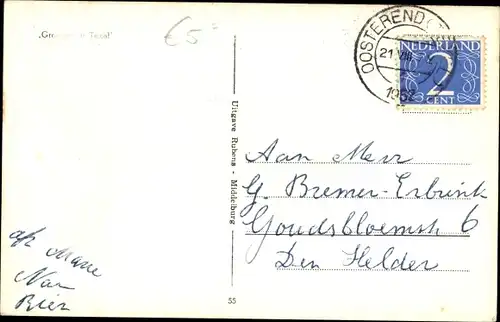 „Groeten uit Texel"
€5=
OOSTEREND
21 VIII
195
NEDERLAND
2
CENT
Uitgave Rubens - Middelburg
Aan Mevr
G. Bremer-Erbrink
Goudsbloemstr 6
Den Helder
afz Marie
Nan
Bien
55